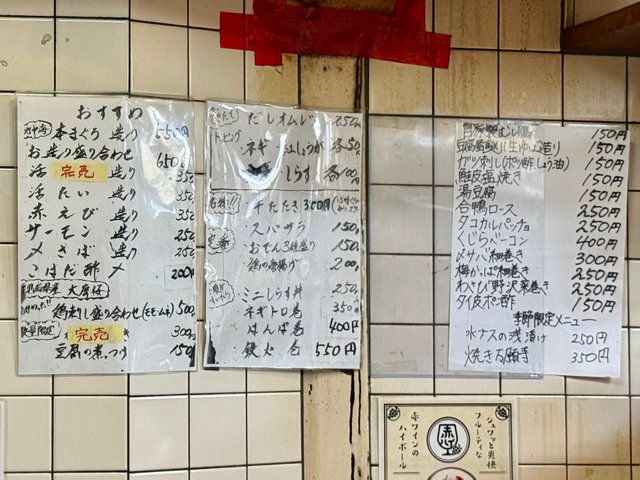 おすすめ
本まぐろ 造り 550円
お造り盛り合わせ 650
活 完売 造り 350
活 たい 造り 350
赤えび 造り 350
サーモン 造り 250
〆さば 造り 250
こはだ酢〆 200円
大摩桜
鶏刺し盛り合わせ(ももムネ) 500
数量限定 完売 300円
豆腐の煮つけ 150
だしオムレツ 250円
トッピング ネギ 紅しょうが 各50
しらす 各100
牛たたき 300円
定番 スパサラ 150
おでん3種盛り 150
鶏の唐揚げ 200
ミニしらす丼 250
ネギトロ巻 350
はんぱ巻 400円
鉄火巻 550円
自家製むし鶏 150円
150円
ガツ刺し(ポン酢、しょう油) 150円
鮭皮塩焼き 150円
湯豆腐 150円
合鴨ロース 250円
タコカルパッチョ 250円
くじらベーコン 400円
〆サバ細巻き 300円
梅かっぱ細巻き 250円
わさび野沢菜巻き 250円
タイ皮ポン酢 150円
季節限定メニュー
水ナスの浅漬け 250円
焼き万願寺 350円
シュワッと爽快
フルーティな
赤ハイ
赤ワインの
ハイボール